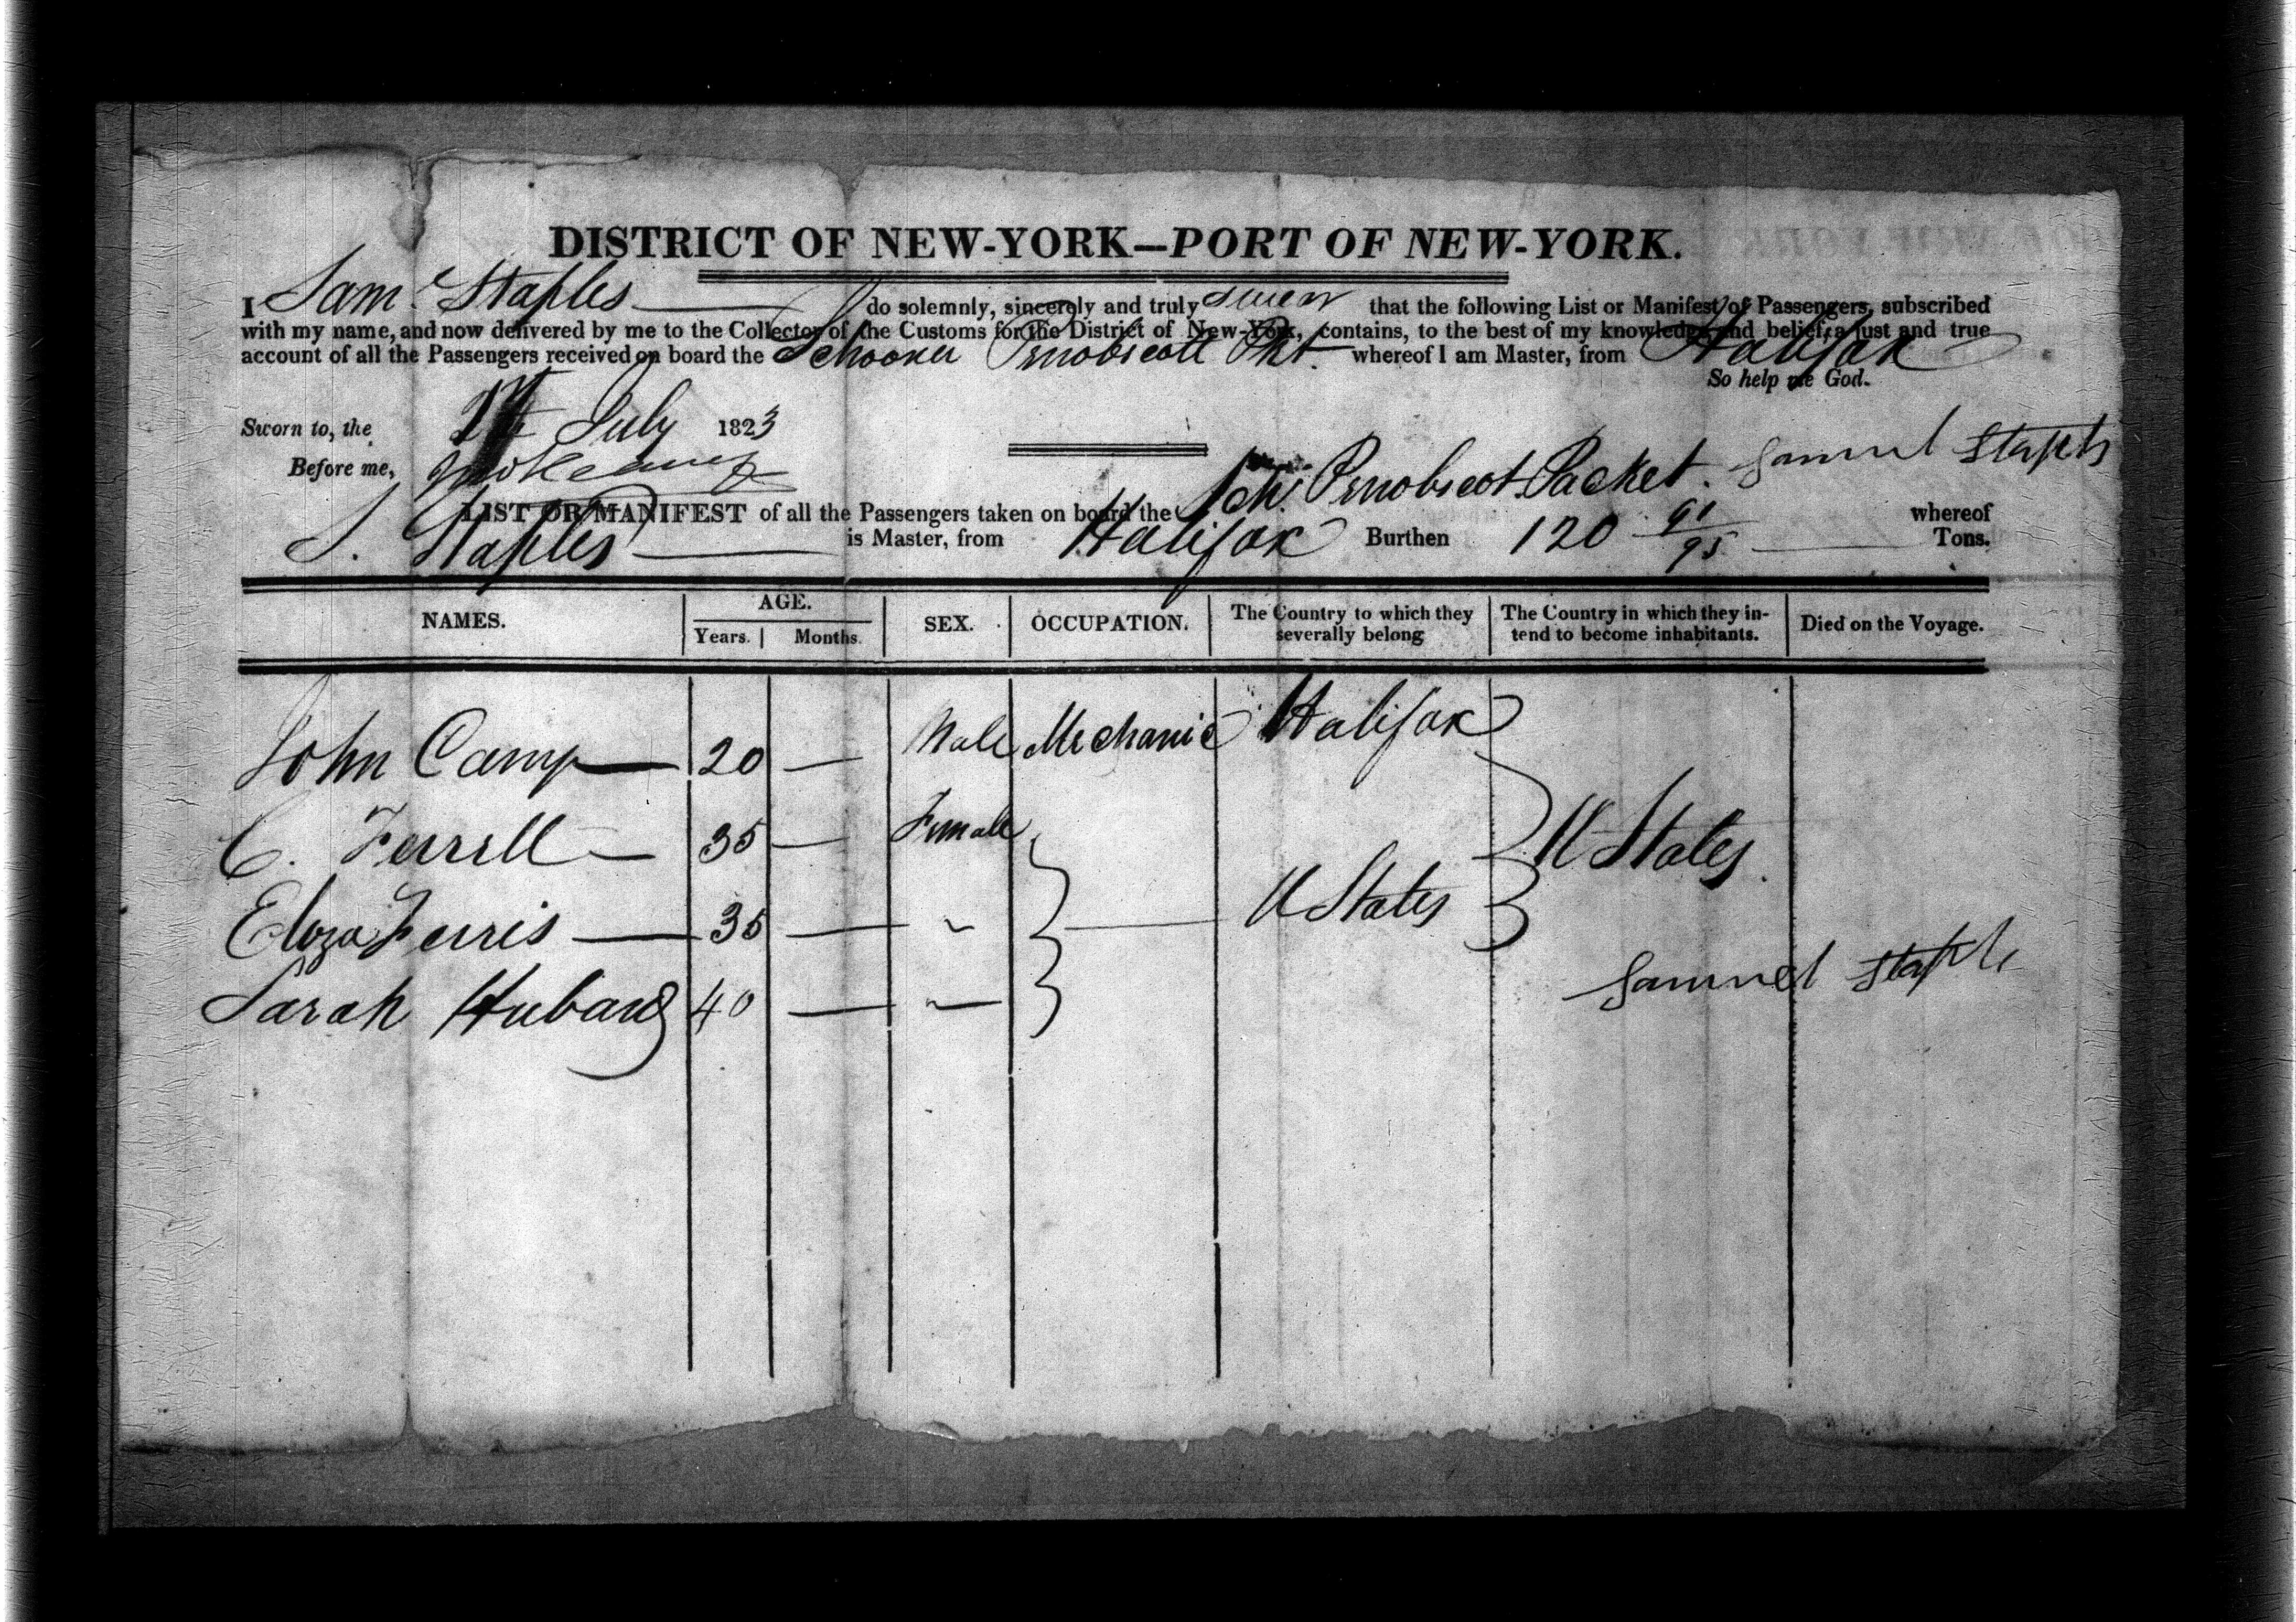 DISTRICT OF NEW-YORK—PORT OF NEW-YORK.
I Saml Staples do solemnly, sincerely and truly swear that the following List or Manifest of Passengers, subscribed
with my name, and now delivered by me to the Collector of the Customs for the District of New-York, contains, to the best of my knowledge and belief, a just and true
account of all the Passengers received on board the Schooner Penobscott Pkt. whereof I am Master, from Halifax
So help me God.
Sworn to, the July 1823
Before me,
Samuel Staples
LIST OR MANIFEST of all the Passengers taken on board the Sch. Penobscot Packet. whereof
S. Staples is Master, from Halifax Burthen 120 91/95 Tons.
NAMES. AGE. SEX. OCCUPATION. The Country to which they severally belong The Country in which they intend to become inhabitants. Died on the Voyage.
Years. Months.
John Camp — 20 — Male Mechanic Halifax
C. Ferrell — 35 — Female U States
Eliza Ferris — 35 — " U States
Sarah Huband 40 — "
Samuel Staple